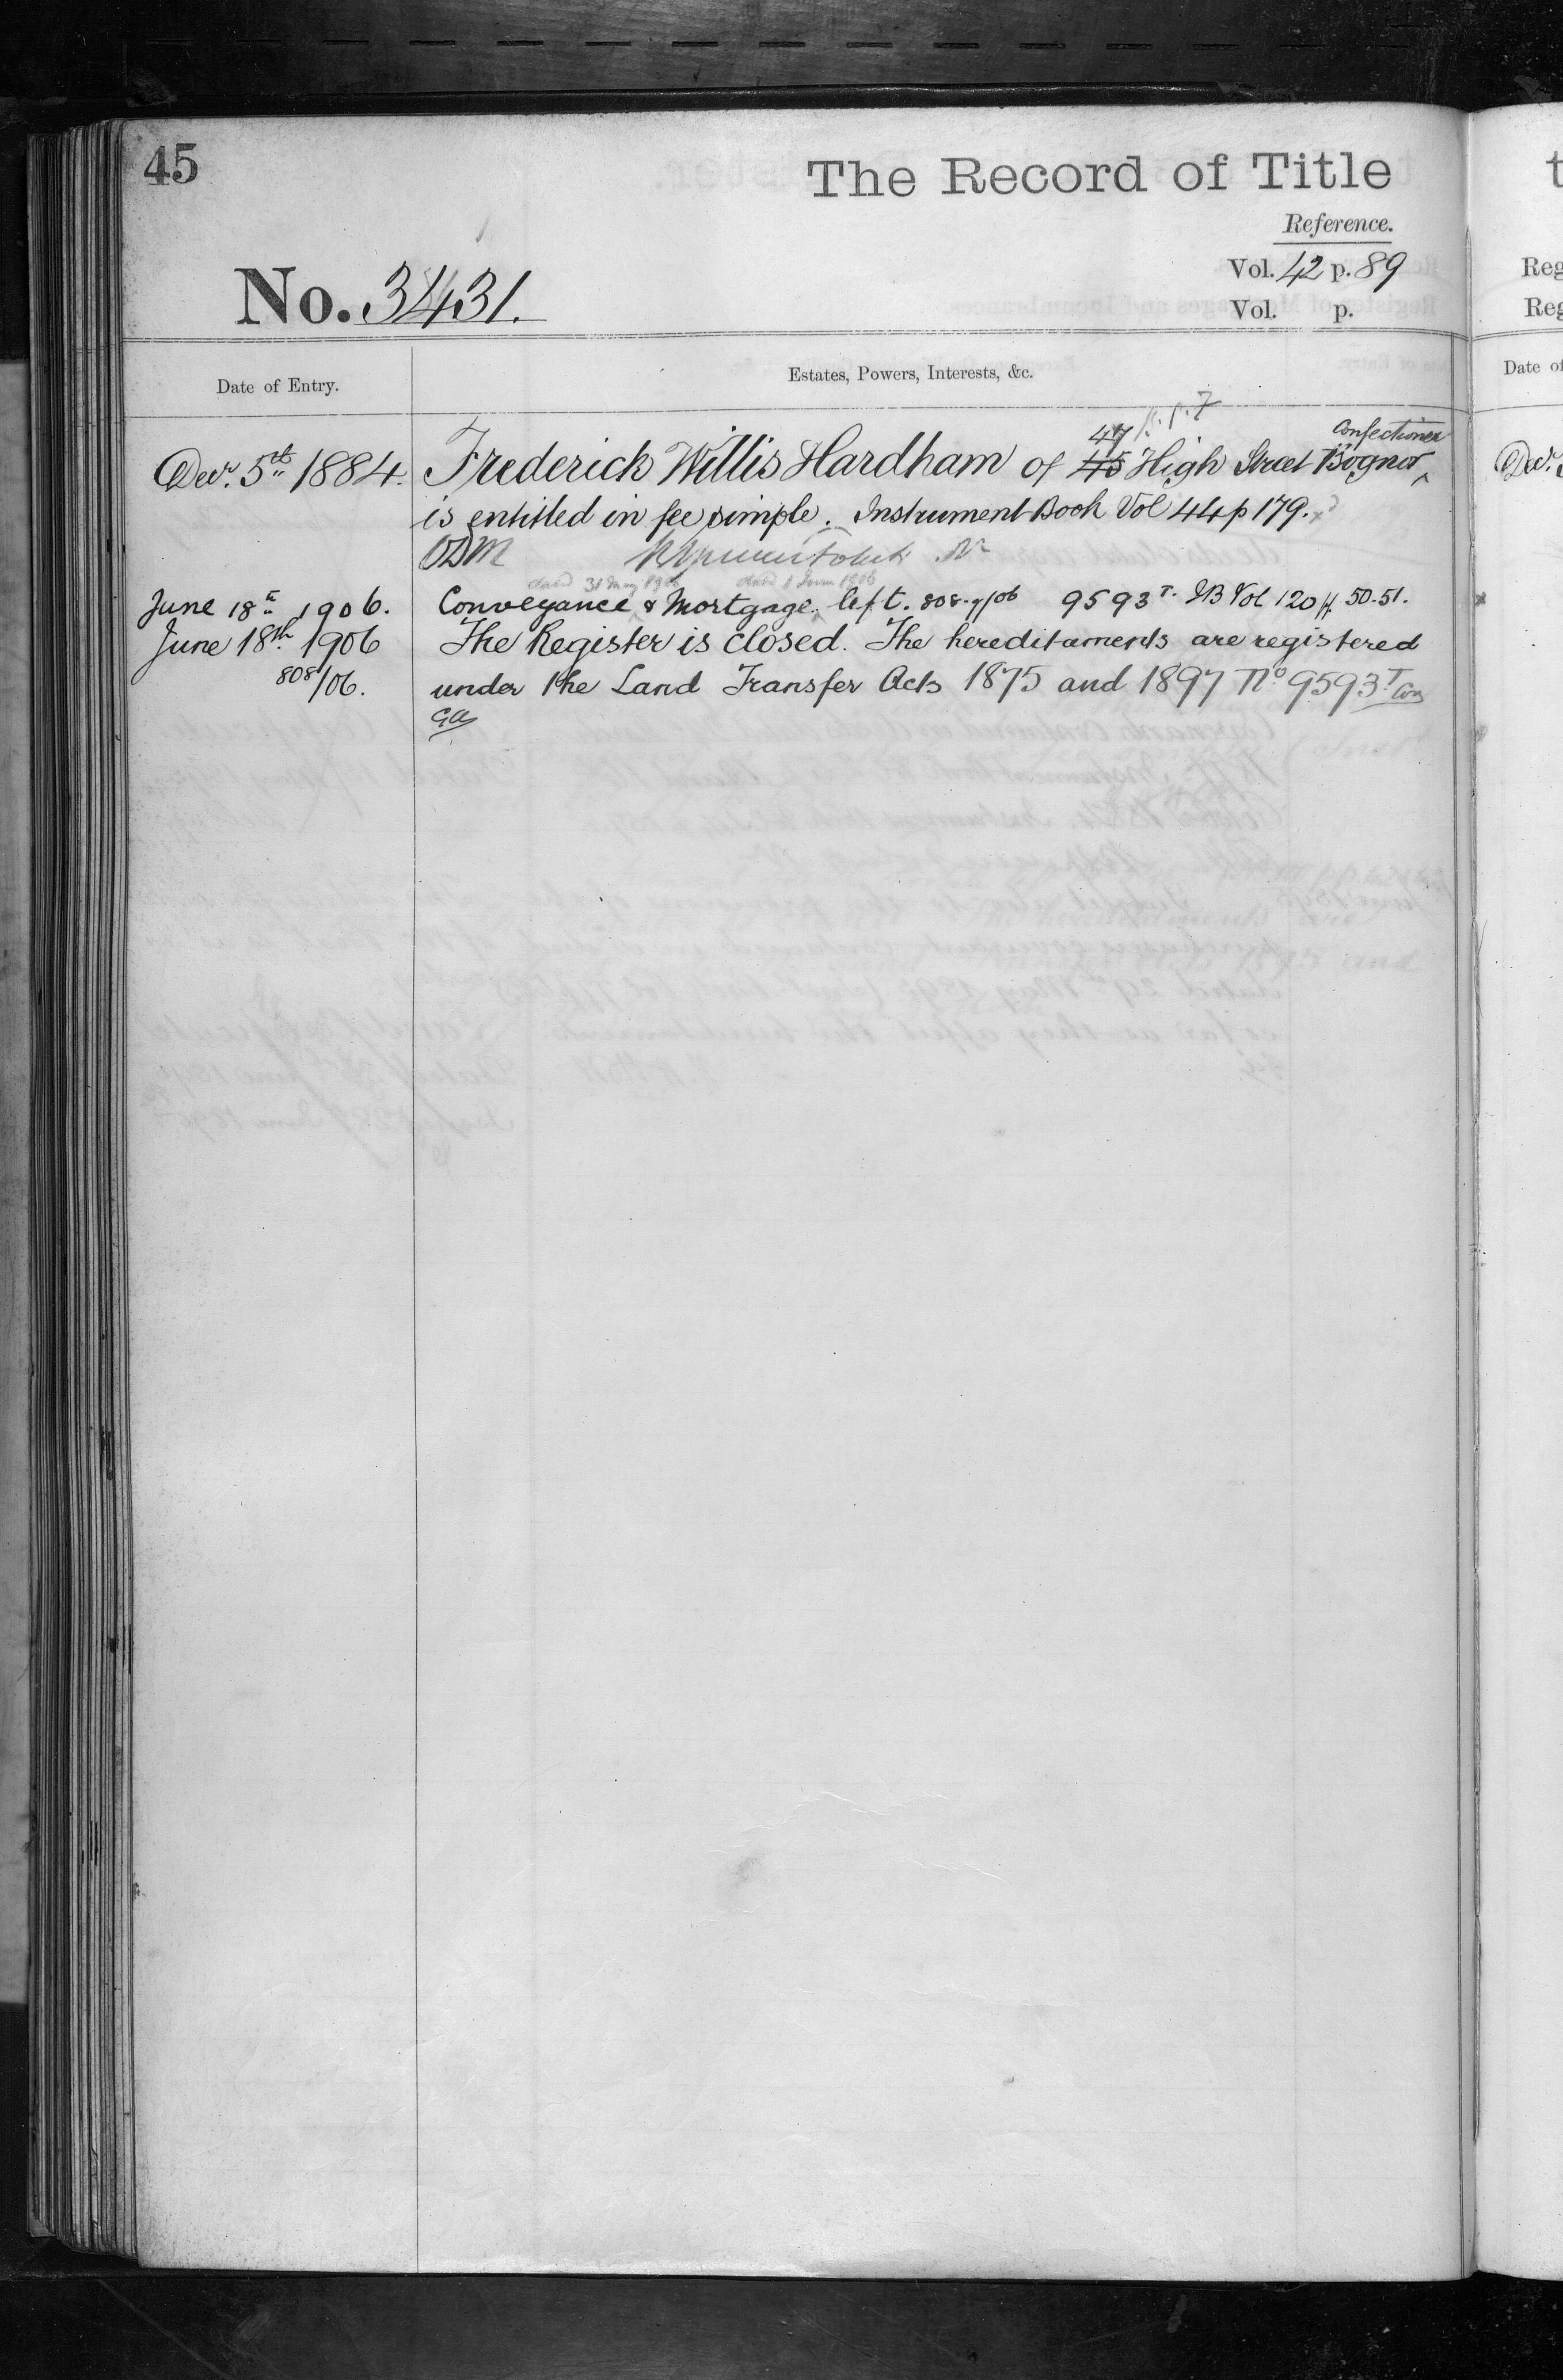 45
The Record of Title
Reference.
Vol. 42 p. 89
No. 3431.
Vol. p.
Date of Entry.
Estates, Powers, Interests, &c.
47
Confectioner
Decr. 5th 1884. Frederick Willis Hardham of 45 High Street Bognor
is entitled in fee simple. Instrument Book Vol 44 p 179.
ODM
dated 31 May 1906 dated 1 June 1906
June 18th 1906. Conveyance & Mortgage left. 808-9/06 9593T. IB Vol 120 pp. 50-51.
June 18th 1906 The Register is closed. The hereditaments are registered
808/06. under the Land Transfer Acts 1875 and 1897 No 9593T
GA
Reg
Reg
Date of
Decr.